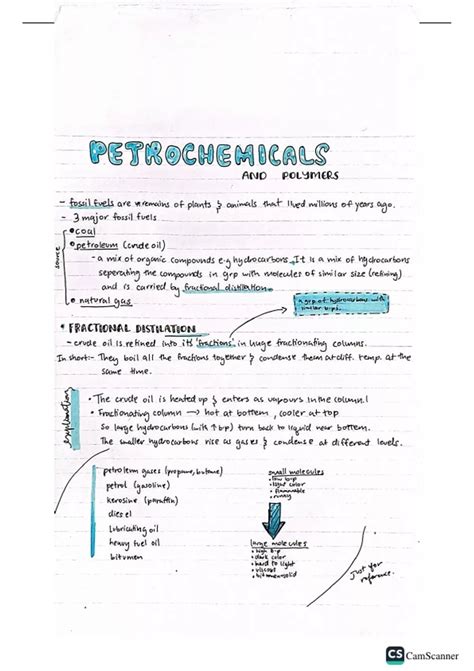 PETROCHEMICALS
AND POLYMERS
- fossil fuels are remains of plants & animals that lived millions of years ago.
- 3 major fossil fuels
source
• coal
• petroleum (crude oil)
- a mix of organic compounds e.g hydrocarbons. It is a mix of hydrocarbons
seperating the compounds in grp with molecules of similar size (refining)
and is carried by fractional distillation.
• natural gas
a grp of hydrocarbons with
similar b.pts.
* FRACTIONAL DISTILATION
- crude oil is refined into its 'fractions' in huge fractionating column.
In short:- They boil all the fractions together & condense them at diff. temp. at the
same time.
explanation
• The crude oil is heated up & enters as vapours in the column.
• Fractionating column → hot at bottom, cooler at top
So large hydrocarbons (with ↑ b.p) turn back to liquid near bottom.
The smaller hydrocarbons rise as gases & condense at different levels.
petroleum gases (propane, butane)
petrol (gasoline)
kerosine (paraffin)
diesel
lubricating oil
heavy fuel oil
bitumen
small molecules
• low b.p
• light color
• flammable
• runny
large molecules
• high b.p
• dark color
• hard to light
• viscous
• bitumen-solid
Just for
reference.
CS CamScanner